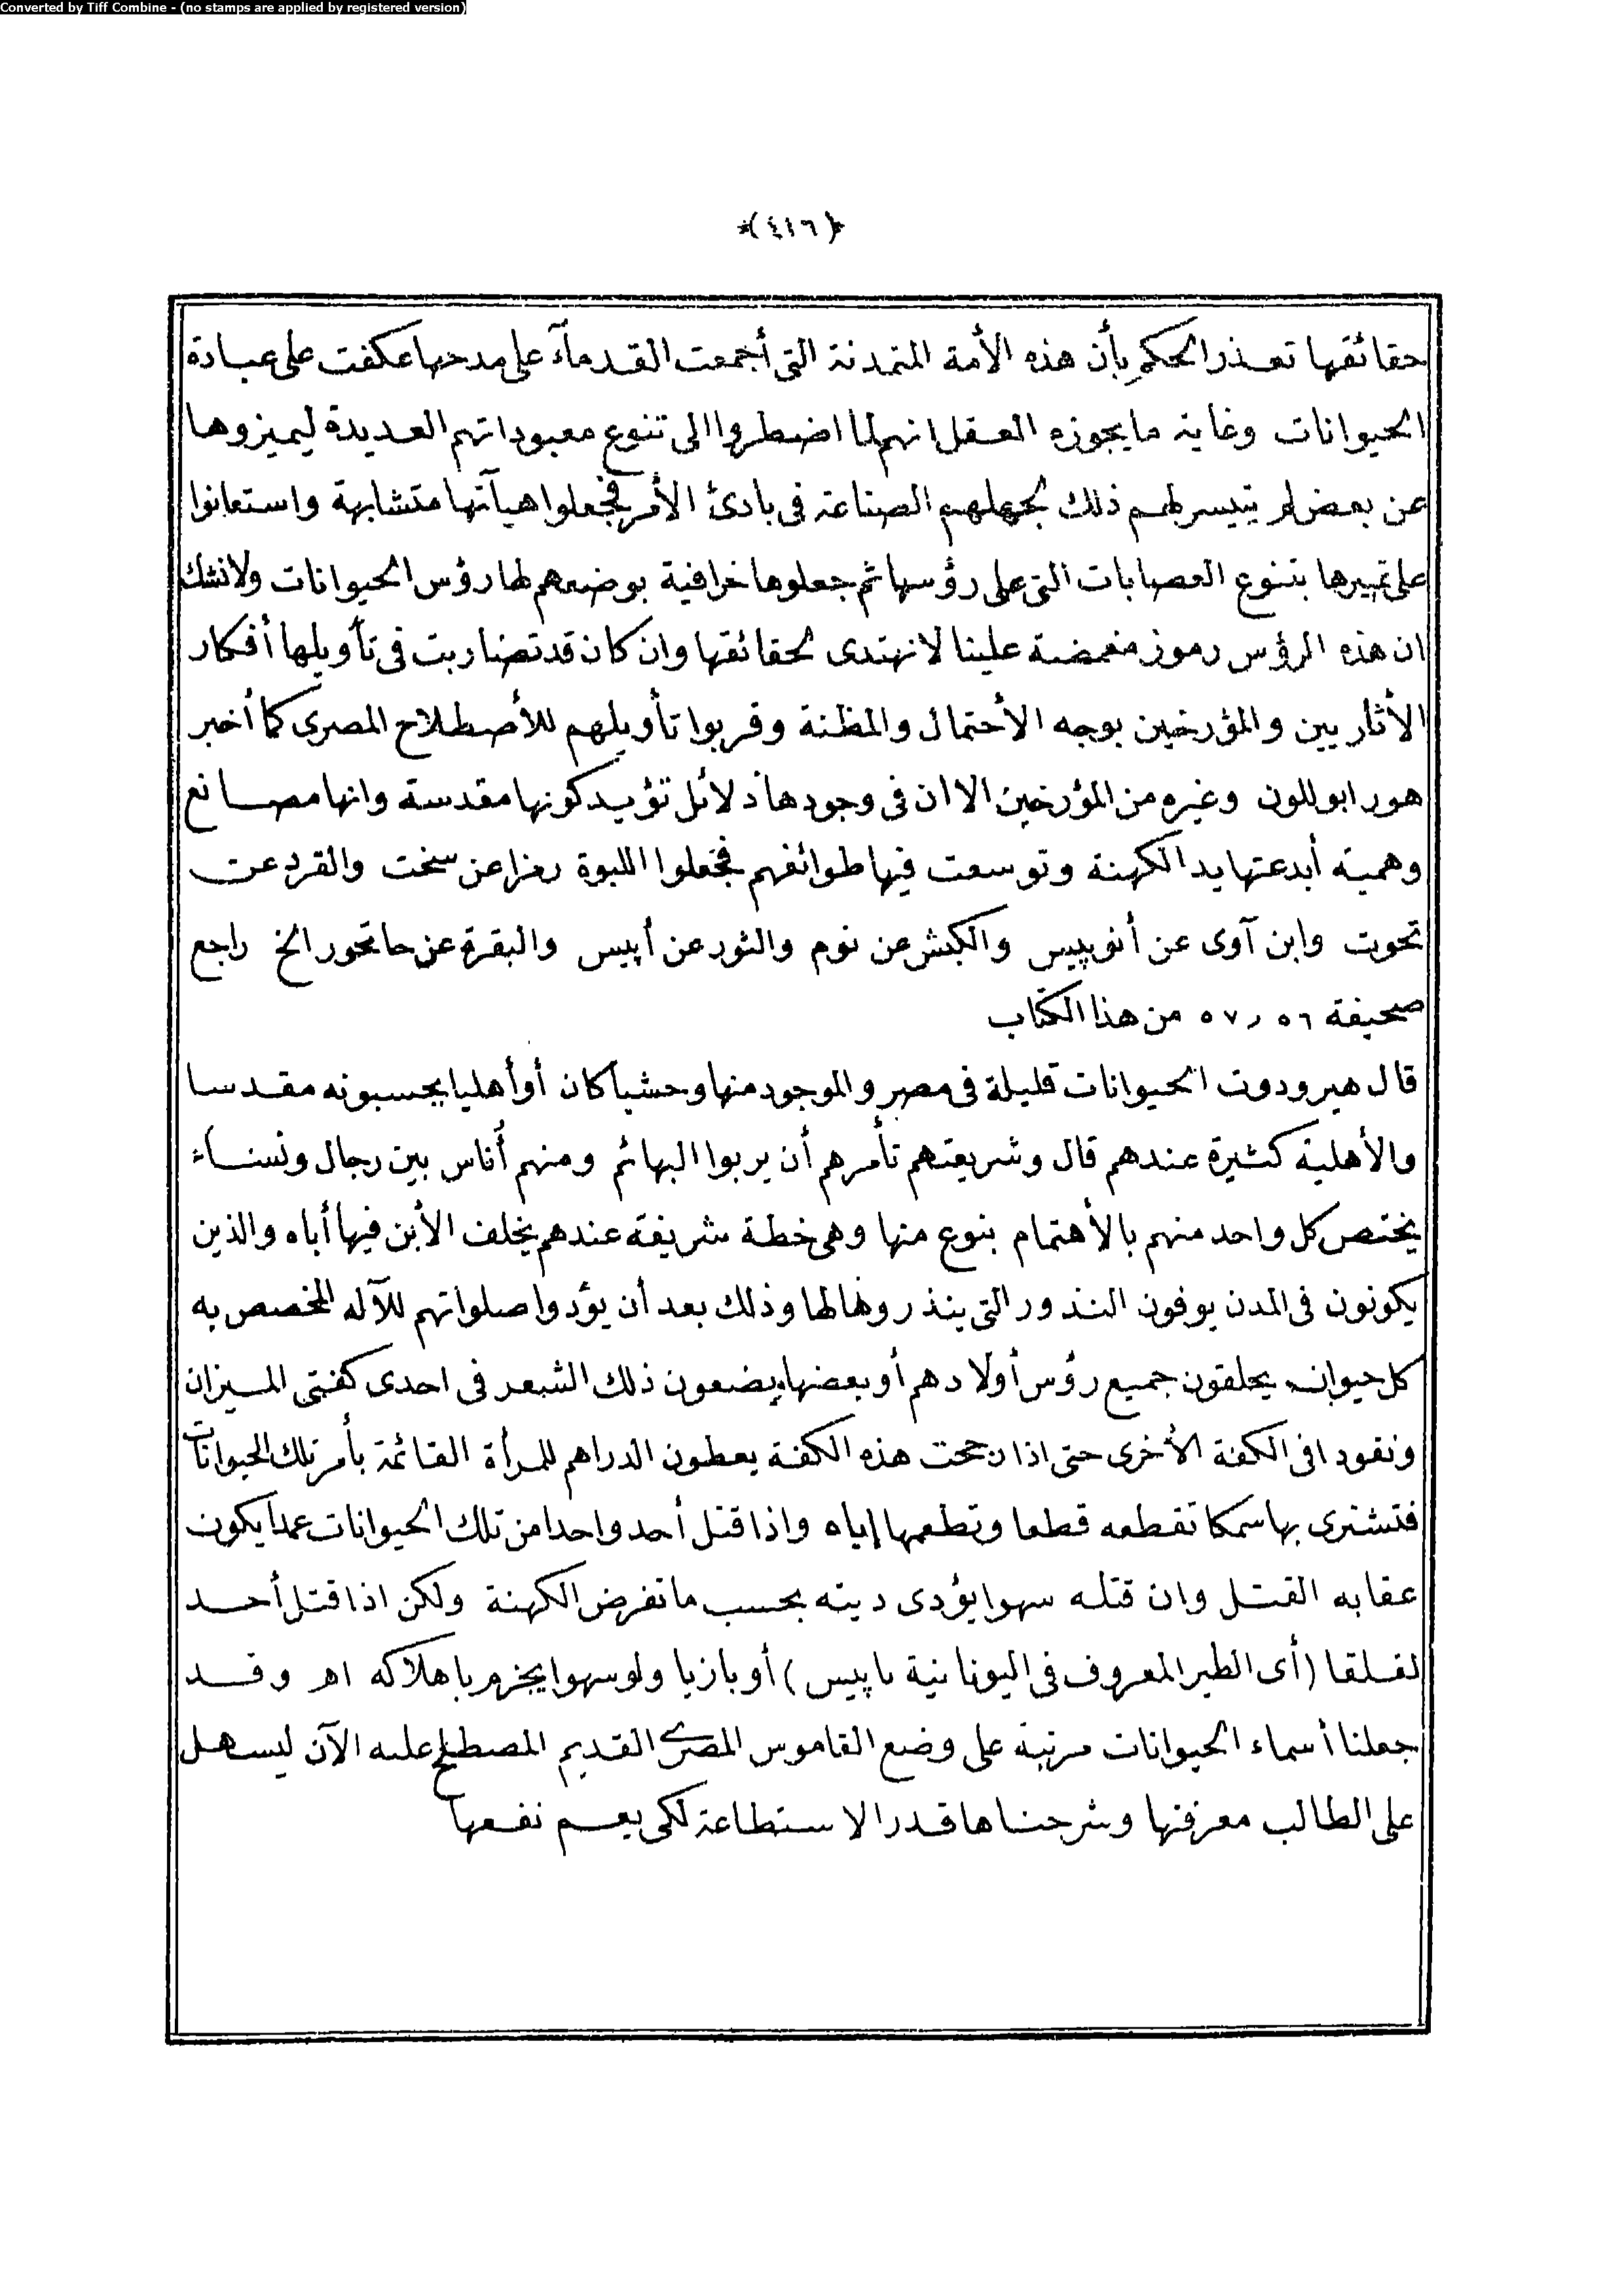 Converted by Tiff Combine - (no stamps are applied by registered version)
*(٤١٦)*
حقائقها تعذر الحكم بأن هذه الأمة المتمدنة التى أجمعت القدمآء على مدحها عكفت على عبادة
الحيوانات وغاية مايجوزه العقل انهم لما اضطروا الى تنوع معبوداتهم العديدة ليميزوها
عن بعض لم يتيسر لهم ذلك لجهلهم الصناعة فى بادئ الأمر فجعلوا هيآتها متشابهة واستعانوا
على تمييزها بتنوع العصابات التى على رؤسها ثم جعلوها خرافية بوضعهم لها رؤس الحيوانات ولانشك
ان هذه الرؤس رموز مغمضة علينا لانهتدى لحقائقها وان كان قد تضاربت فى تأويلها أفكار
الأثاريين والمؤرخين بوجه الأحتمال والمظنة وقربوا تأويلهم للأصطلاح المصرى كما أخبر
هورابوللون وغيره من المؤرخين الا ان فى وجودها دلائل تؤيد كونها مقدسة وانها مصانع
وهمية أبدعتها يد الكهنة وتوسعت فيها طوائفهم فجعلوا اللبوة رمزا عن سخت والقرد عن
تحوت وابن آوى عن أنوبيس والكبش عن نوم والثور عن أپيس والبقرة عن حاتحور الخ راجع
صحيفة ٥٦ ر ٥٧ من هذا الكتاب
قال هيرودوت الحيوانات قليلة فى مصر والموجود منها وحشيا كان أو أهليا يحسبونه مقدسا
والأهلية كثيرة عندهم قال وشريعتهم تأمرهم أن يربوا البهائم ومنهم أناس بين رجال ونساء
يختص كل واحد منهم بالأهتمام بنوع منها وهى خطة شريفة عندهم يخلف الأبن فيها أباه والذين
يكونون فى المدن يوفون النذور التى ينذرونها لها وذلك بعد أن يؤدوا صلواتهم للآله المخصص به
كل حيوان يحلقون جميع رؤس أولادهم أو بعضها ويضعون ذلك الشعر فى احدى كفتى الميزان
ونقودا فى الكفة الأخرى حتى اذا رجحت هذه الكفة يعطون الدراهم للمرأة القائمة بأمر تلك الحيوانات
فتشترى بها سمكا تقطعه قطعا وتطعمها إياه واذا قتل أحد واحدا من تلك الحيوانات عمدا يكون
عقابه القتل وان قتله سهوا يؤدى ديته بحسب ماتفرض الكهنة ولكن اذا قتل أحد
لقلقا (أى الطير المعروف فى اليونانية باپيس) أو بازيا ولو سهوا يجزم باهلاكه اھ وقد
جعلنا أسماء الحيوانات مرتبة على وضع القاموس المصرى القديم المصطلح عليه الآن ليسهل
على الطالب معرفتها وشرحناها قدر الاستطاعة لكى يعم نفعها